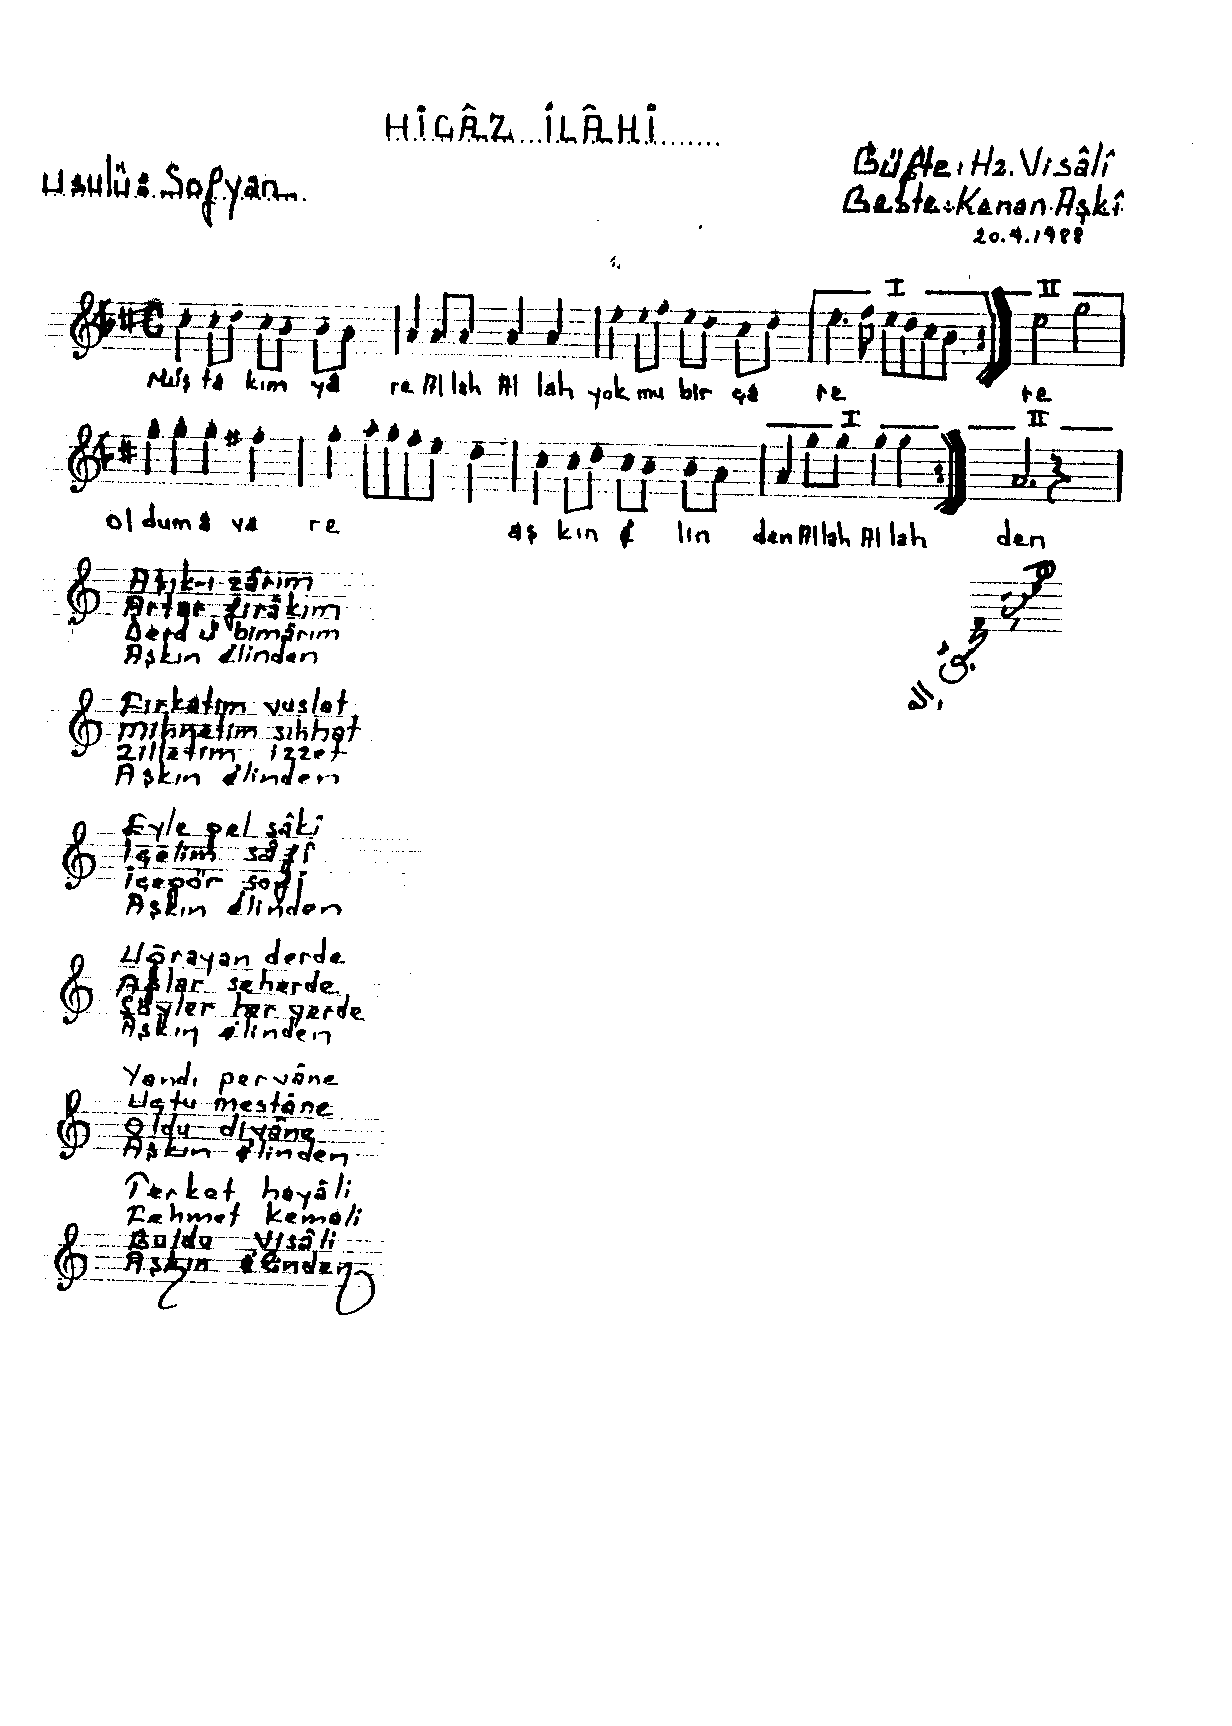 HİCÂZ İLÂHİ
Usulü: Sofyan
Güfte: Hz. Visâlî
Beste: Kenan Aşkî
20.4.1988
I II
Müş ta kım ya re Allah Al lah yok mu bir ça re re
I II
ol dum a va re aş kın e lin den Allah Al lah den
Aşık-ı zârım
Artar firâkım
Derd ü bimârım
Aşkın elinden
Firkatım vuslat
Mihnetim sıhhat
Zilletim izzet
Aşkın elinden
Eyle gel sâkî
İçelim sâfî
İçegör sofi
Aşkın elinden
Uğrayan derde
Ağlar seherde
Söyler her yerde
Aşkın elinden
Yandı pervâne
Uçtu mestâne
Oldu divâne
Aşkın elinden
Terket hayâli
Fehmet kemali
Buldu Visâli
Aşkın elinden